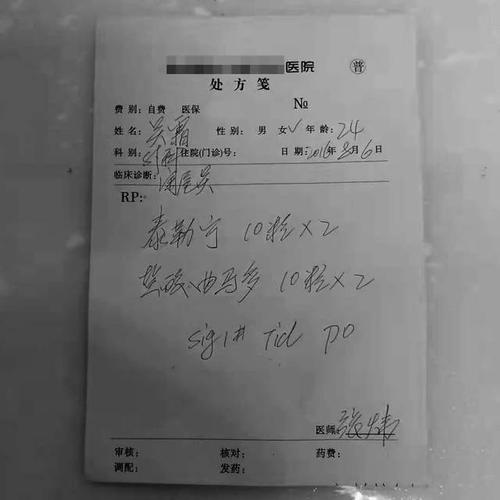 医院 普
处方笺
费别：自费 医保 №
姓名：吴霜 性别：男 女√ 年龄：24
科别：外科 住院(门诊)号： 日期：2016年8月6日
临床诊断：阑尾炎
RP:
泰勒宁 10粒×2
盐酸曲马多 10粒×2
sig 1# tid po
医师：张炜
审核： 核对： 药费：
调配： 发药：